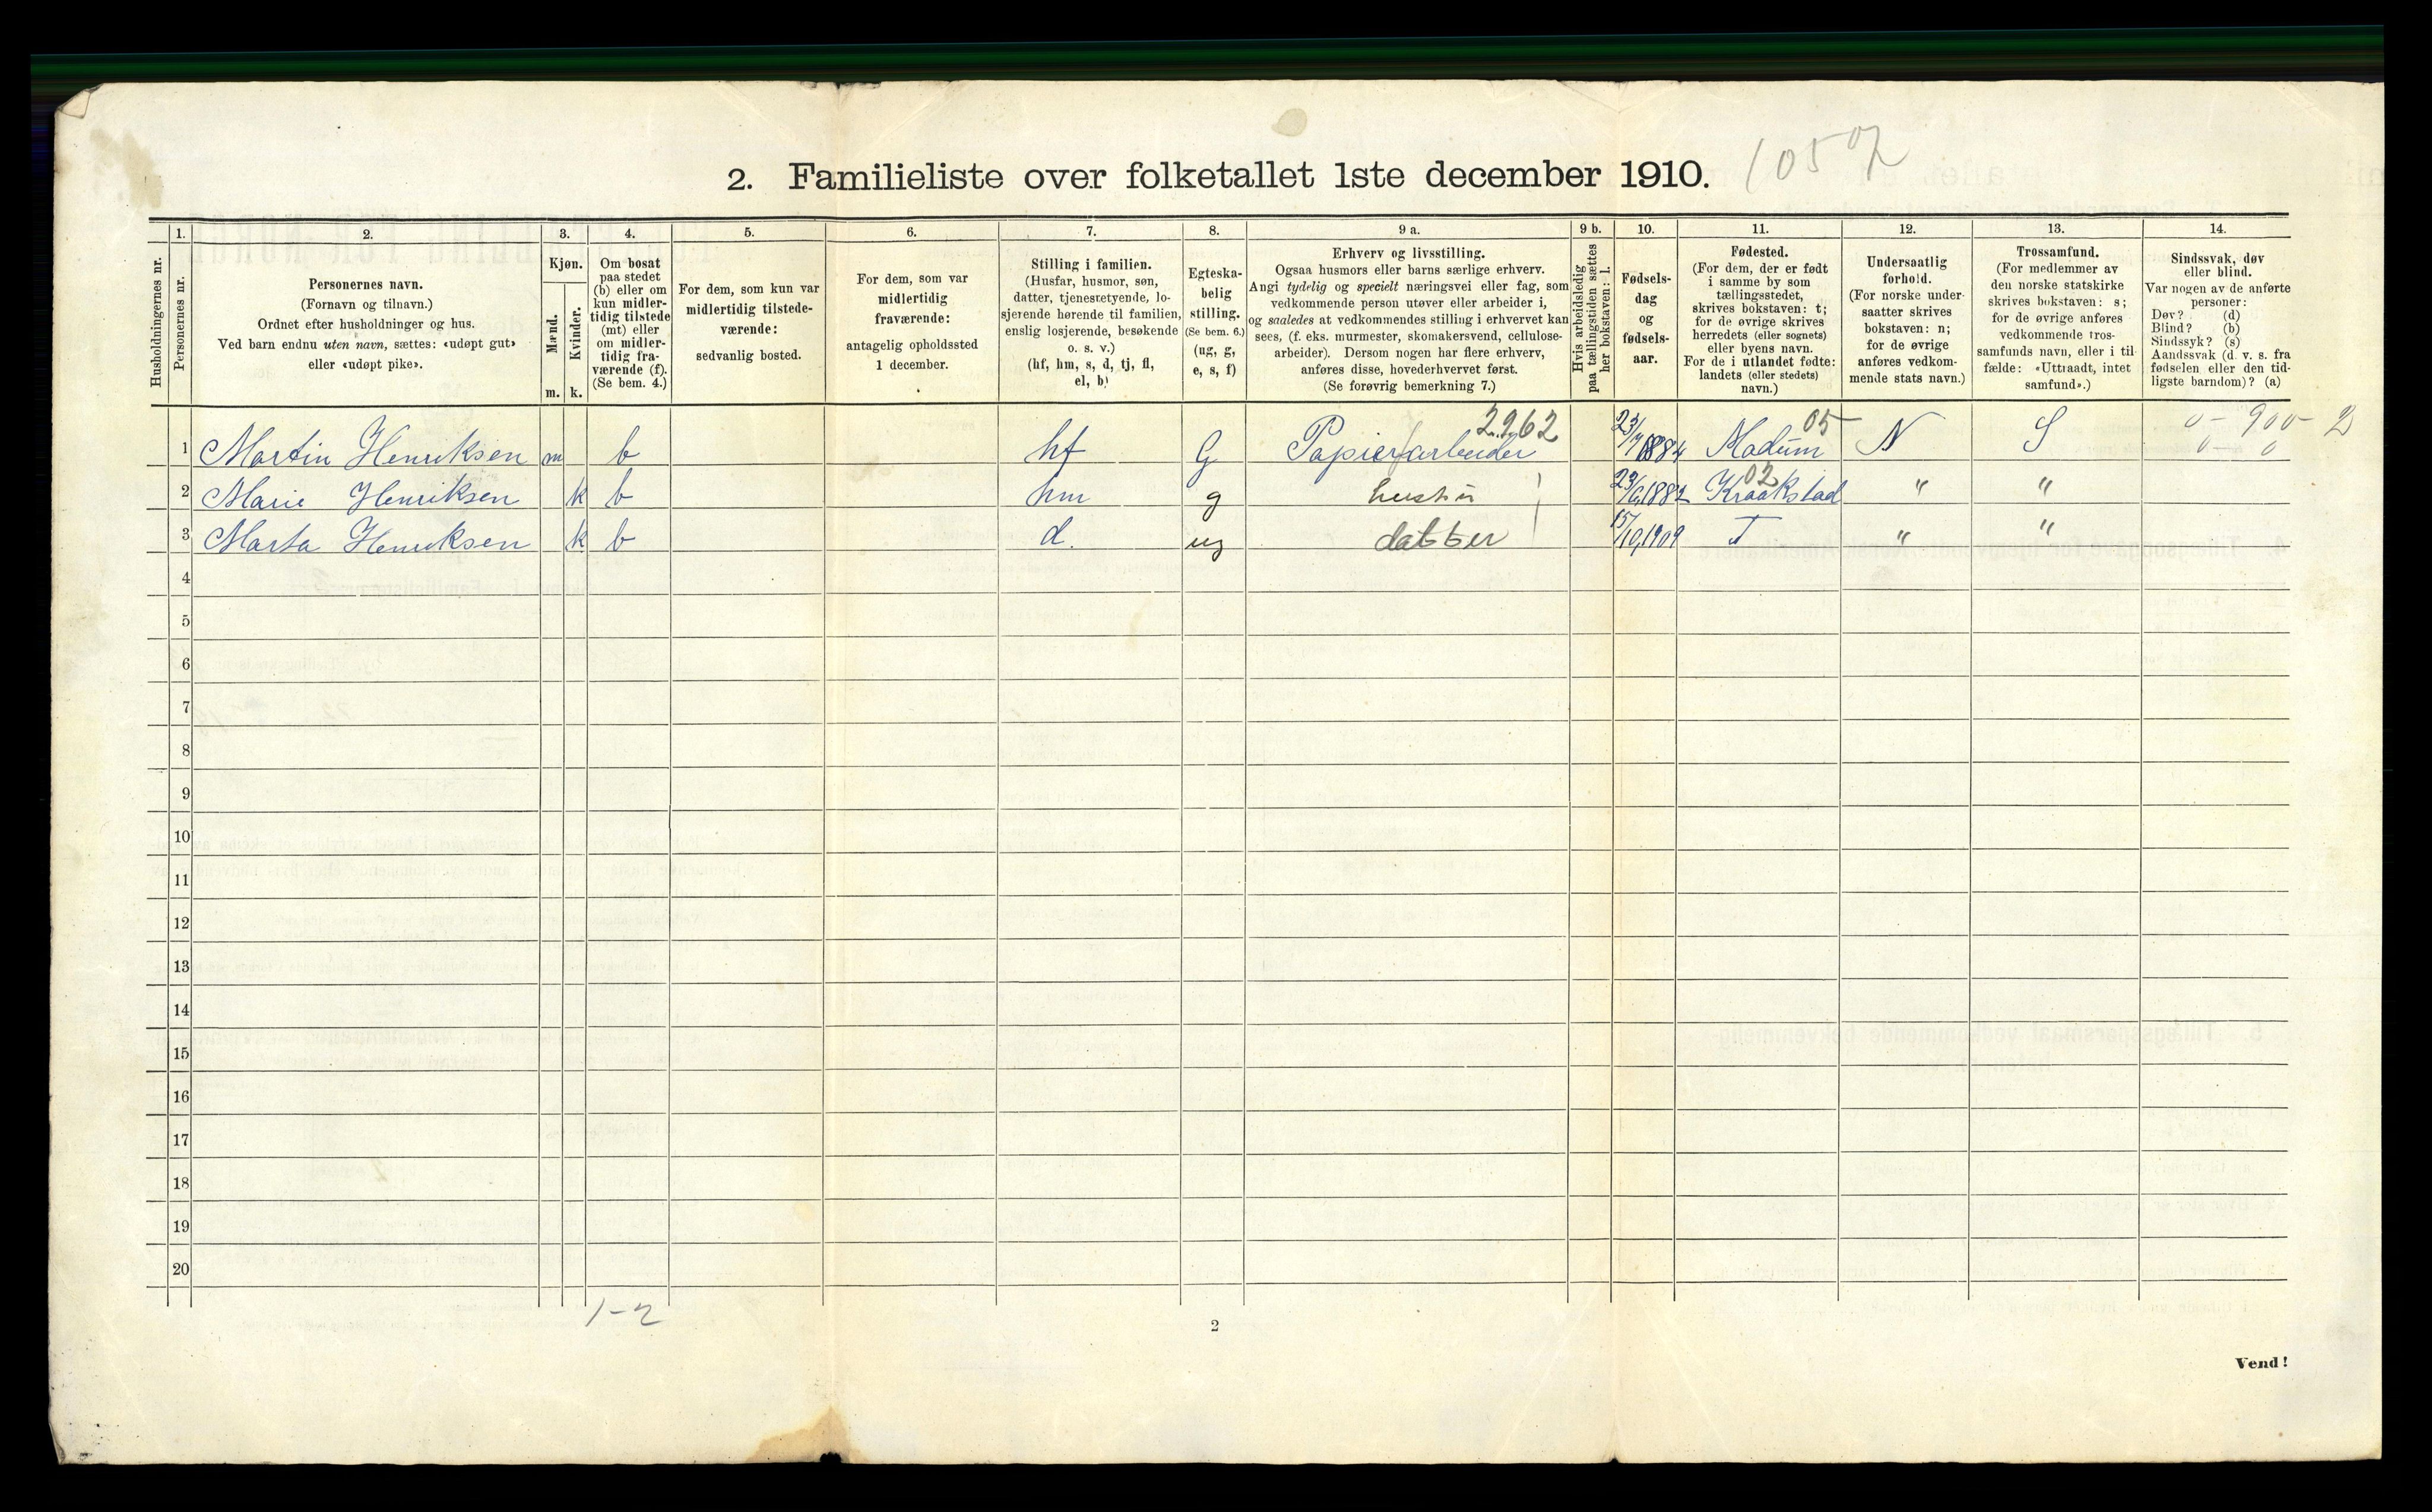 2. Familieliste over folketallet 1ste december 1910. 1057
Husholdningernes nr.
1. Personernes nr.
2. Personernes navn.
(Fornavn og tilnavn.)
Ordnet efter husholdninger og hus.
Ved barn endnu uten navn, sættes: «udøpt gut»
eller «udøpt pike».
3. Kjøn.
Mænd. Kvinder.
m. k.
4. Om bosat
paa stedet
(b) eller om
kun midler-
tidig tilstede
(mt) eller
om midler-
tidig fra-
værende (f).
(Se bem. 4.)
5. For dem, som kun var
midlertidig tilstede-
værende:
sedvanlig bosted.
6. For dem, som var
midlertidig
fraværende:
antagelig opholdssted
1 december.
7. Stilling i familien.
(Husfar, husmor, søn,
datter, tjenestetyende, lo-
sjerende hørende til familien,
enslig losjerende, besøkende
o. s. v.)
(hf, hm, s, d, tj, fl,
el, b)
8. Egteska-
belig
stilling.
(Se bem. 6.)
(ug, g,
e, s, f)
9 a. Erhverv og livsstilling.
Ogsaa husmors eller barns særlige erhverv.
Angi tydelig og specielt næringsvei eller fag, som
vedkommende person utøver eller arbeider i,
og saaledes at vedkommendes stilling i erhvervet kan
sees, (f. eks. murmester, skomakersvend, cellulose-
arbeider). Dersom nogen har flere erhverv,
anføres disse, hovederhvervet først.
(Se forøvrig bemerkning 7.)
9 b. Hvis arbeidsledig
paa tællingstiden sættes
her bokstaven: l.
10. Fødsels-
dag
og
fødsels-
aar.
11. Fødested.
(For dem, der er født
i samme by som
tællingsstedet,
skrives bokstaven: t;
for de øvrige skrives
herredets (eller sognets)
eller byens navn.
For de i utlandet fødte:
landets (eller stedets)
navn.)
12. Undersaatlig
forhold.
(For norske under-
saatter skrives
bokstaven: n;
for de øvrige
anføres vedkom-
mende stats navn.)
13. Trossamfund.
(For medlemmer av
den norske statskirke
skrives bokstaven: s;
for de øvrige anføres
vedkommende tros-
samfunds navn, eller i til-
fælde: «Uttraadt, intet
samfund».)
14. Sindssvak, døv
eller blind.
Var nogen av de anførte
personer:
Døv? (d)
Blind? (b)
Sindssyk? (s)
Aandssvak (d. v. s. fra
fødselen eller den tid-
ligste barndom)? (a)
2962 05 0-900-2
1 Martin Henriksen m b hf G Papierarbeider 23/7 1884 Modum N S 0-0
02
2 Marie Henriksen k b hm g hustru 23/6 1882 Kraakstad " "
3 Marta Henriksen k b d. ug datter 15/10 1909 T " "
4
5
6
7
8
9
10
11
12
13
14
15
16
17
18
19
20
1-2
2
Vend!